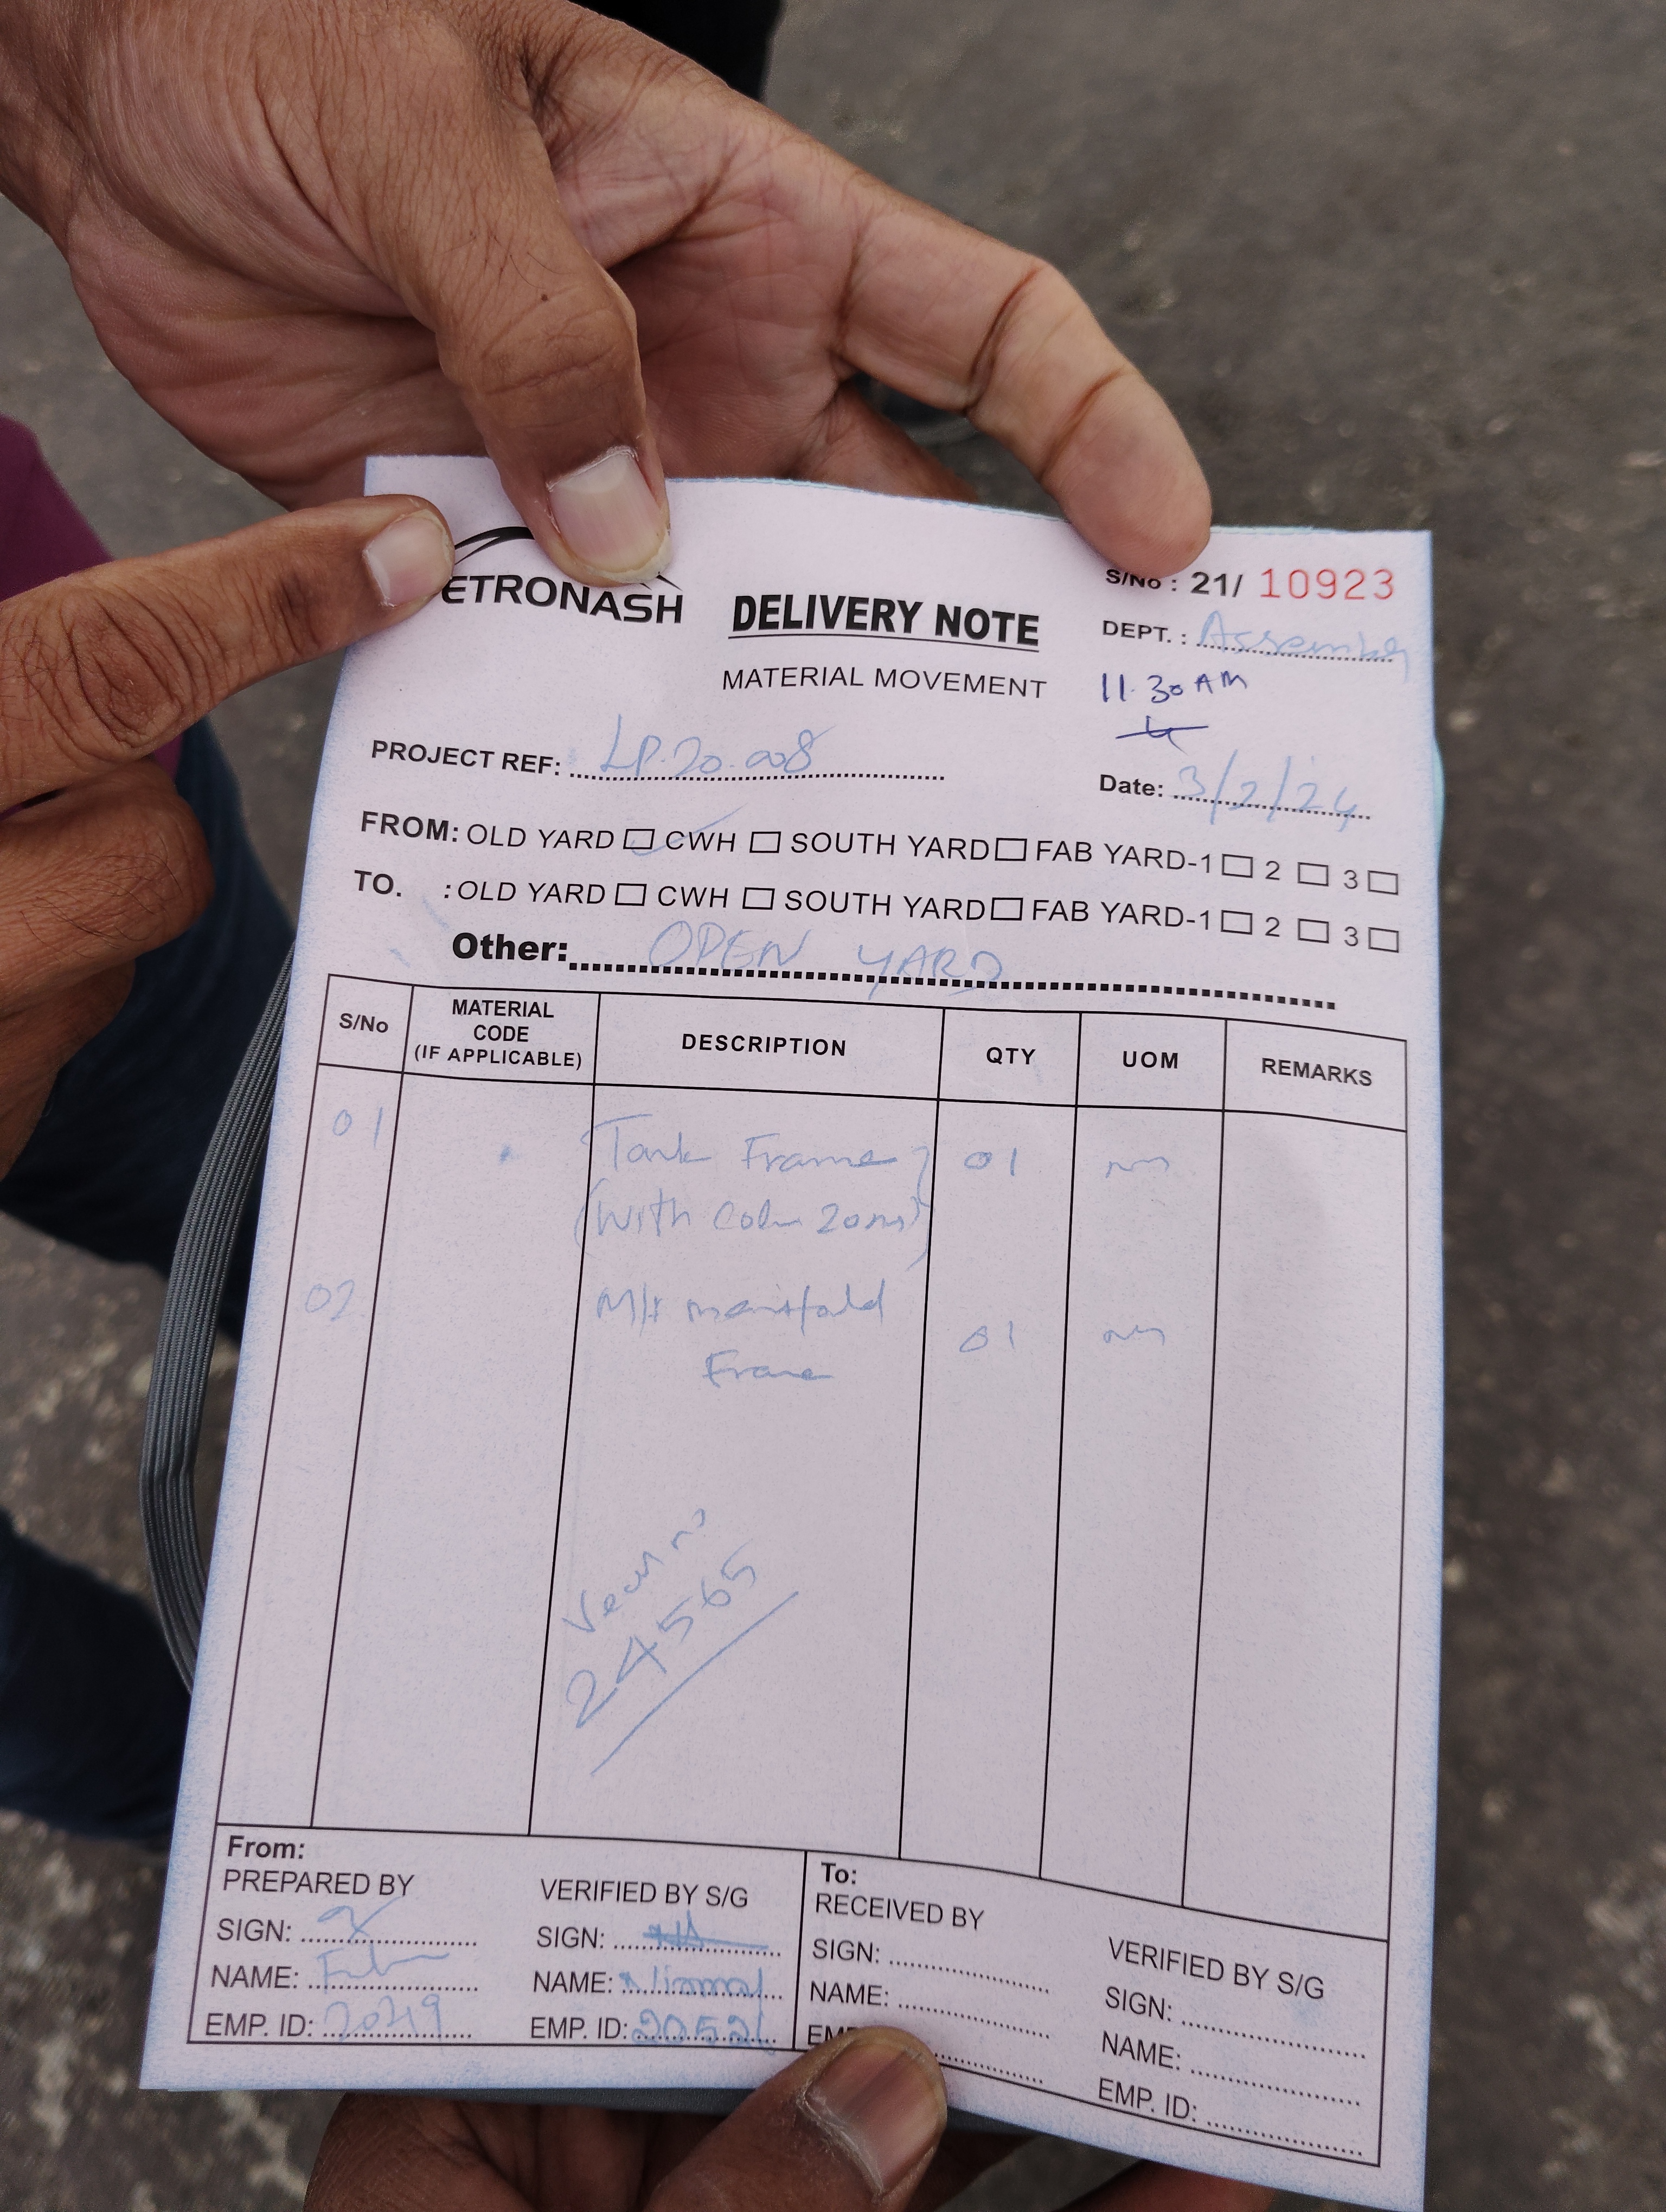 ETRONASH
DELIVERY NOTE
MATERIAL MOVEMENT
S/No : 21/ 10923
DEPT. : Assembly
11.30 AM
PROJECT REF: LP.20.008
Date: 3/2/24
FROM: OLD YARD CWH SOUTH YARD FAB YARD-1 2 3
TO. : OLD YARD CWH SOUTH YARD FAB YARD-1 2 3
Other: OPEN YARD
S/No MATERIAL CODE (IF APPLICABLE) DESCRIPTION QTY UOM REMARKS
01 Tank Frame 01
(With
02 manifold 01
Frame
24565
From:
PREPARED BY
SIGN:
NAME:
EMP. ID: 2049
VERIFIED BY S/G
SIGN:
NAME: Nirmal
EMP. ID:
To:
RECEIVED BY
SIGN:
NAME:
VERIFIED BY S/G
SIGN:
NAME:
EMP. ID: